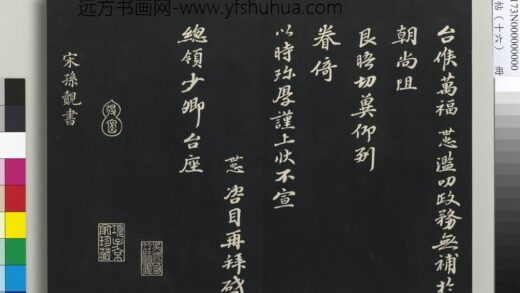 远方书画网-www.yfshuhua.com
173N0000000000
帖（十六）
台候萬福 濫叨政務無補於
朝尚阻
良晤切冀仰
眷倚
以時珍厚謹上狀不宣
咨目再拜啓
總領少卿台座
宋孫覿書
項子京家珍藏